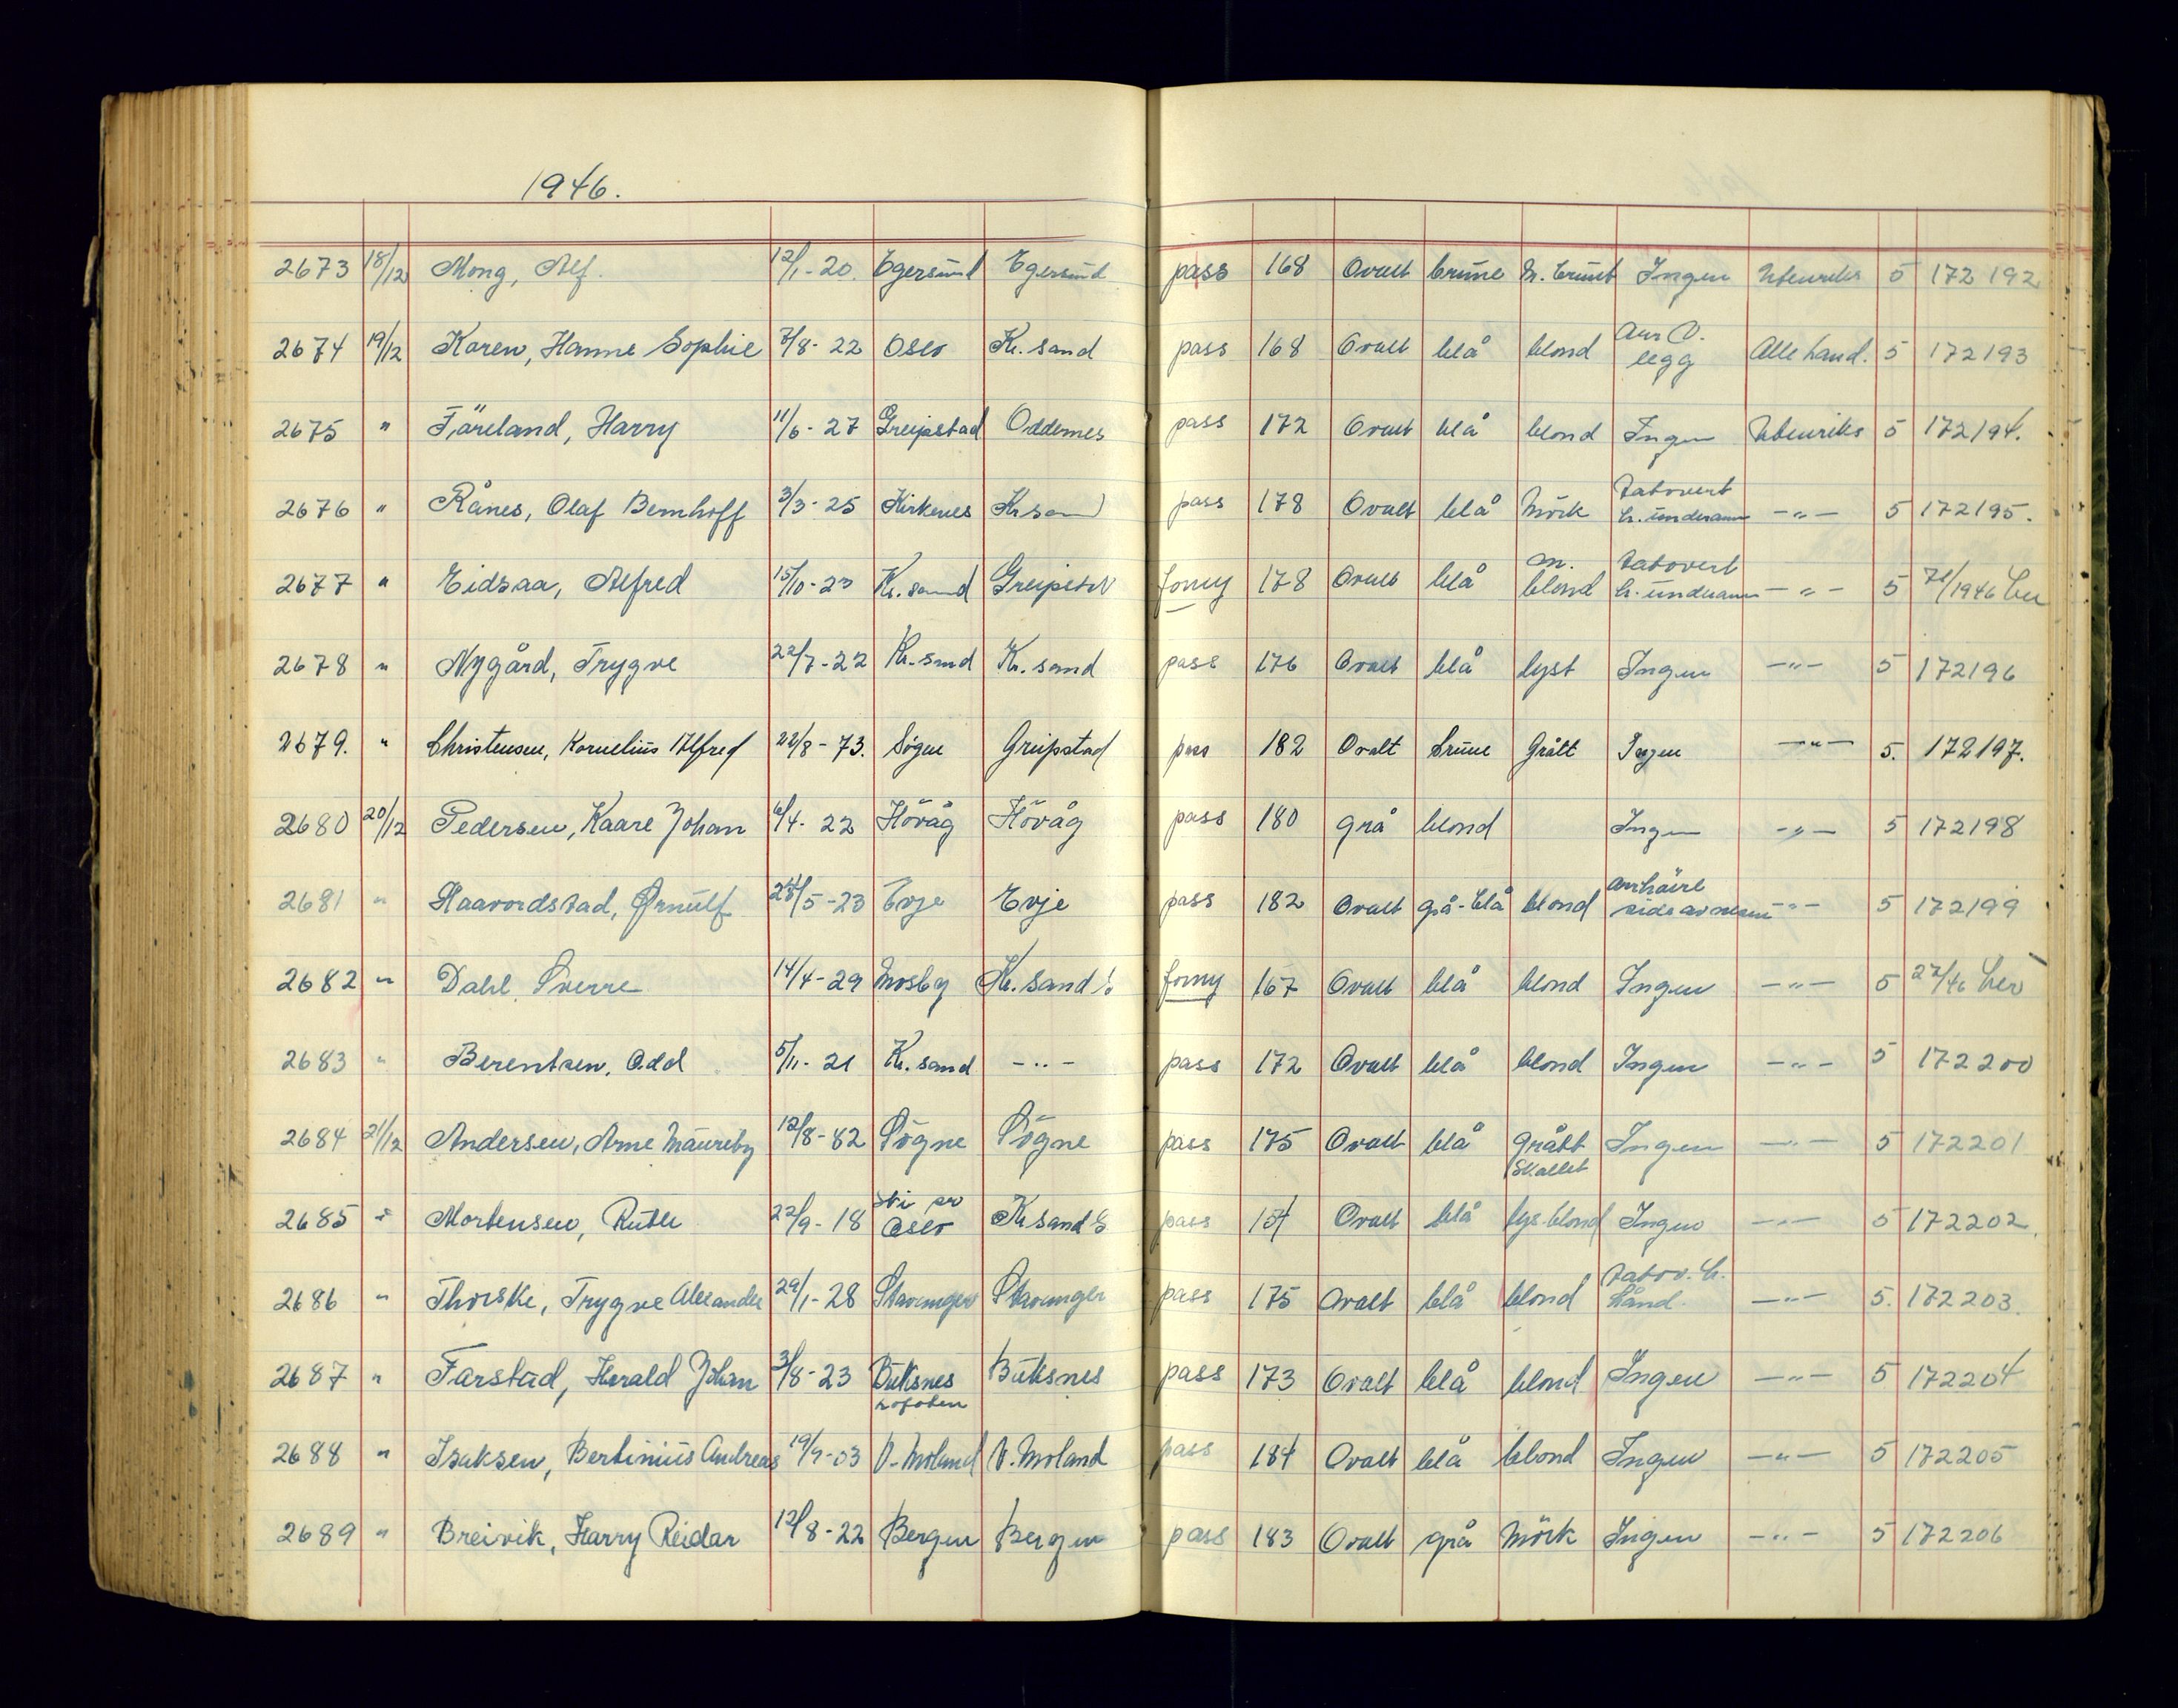 1946.
2673 18/12 Mong, Alf. 12/1-20. Egersund Egersund pass 168 Ovalt brune m. brunt Ingen Utenriks 5 172192
2674 19/12 Karen, Hanne Sophie 7/8-22 Oslo Kr. sand pass 168 Ovalt blå blond Arr V. legg Alle land. 5 172193
2675 " Färeland, Harry 11/6-27 Greipstad Oddernes pass 172 Ovalt blå blond Ingen Utenriks 5 172194.
2676 " Rånes, Olaf Bernhoff 3/3-25 Kirkenes Kr sand pass 178 Ovalt blå Mörk Tatovert h. underarm -"- 5 172195.
2677 " Eidsaa, Alfred 15/10-23 Kr. sand Greipstad forny 178 Ovalt blå m. blond tatovert h. underarm -"- 5 71/1946
2678 " Nygård, Trygve 22/7-22 Kr. sand Kr. sand pass 176 Ovalt blå lyst Ingen -"- 5 172196
2679. " Christensen, Kornelius Alfred 22/8-73. Søgne Greipstad pass 182 Ovalt brune Grått Ingen -"- 5. 172197.
2680 20/12 Pedersen, Kaare Johan 6/4-22 Hövåg Hövåg pass 180 grå blond Ingen -"- 5 172198
2681 " Haavordstad, Ørnulf /5-23 Evje Evje pass 182 Ovalt grå-blå blond arr høire side av nesen -"- 5 172199
2682 " Dahl, Sverre 14/4-29 Mosby Kr. sand S forny 167 Ovalt blå blond Ingen -"- 5 27/46
2683 " Berentsen, Odd 5/11-21 Kr. sand -"- pass 172 Ovalt blå blond Ingen -"- 5 172200
2684 21/12 Andersen, Arne Mauritz 12/8-82 Sögne Sögne pass 175 Ovalt blå grått Skallet Ingen -"- 5 172201
2685 " Mortensen, Ruth 22/9-18 Ski pr Oslo Kr sand S pass Ovalt blå lys blond Ingen -"- 5 172202.
2686 " Thorske, Trygve Alexander 29/1-28 Stavanger Stavanger pass 175 Ovalt blå blond Tatov. h. hånd. -"- 5. 172203.
2687 " Farstad, Harald Johan 3/8-23 Buksnes Lofoten Buksnes pass 173 Ovalt blå blond Ingen -"- 5 172204
2688 " Isaksen, Bertinius Andreas 19/9-03 V-Moland V. Moland pass 184 Ovalt blå blond Ingen -"- 5 172205
2689 " Breivik, Harry Reidar 12/8-22 Bergen Bergen pass 183 Ovalt grå Mörk Ingen -"- 5 172206